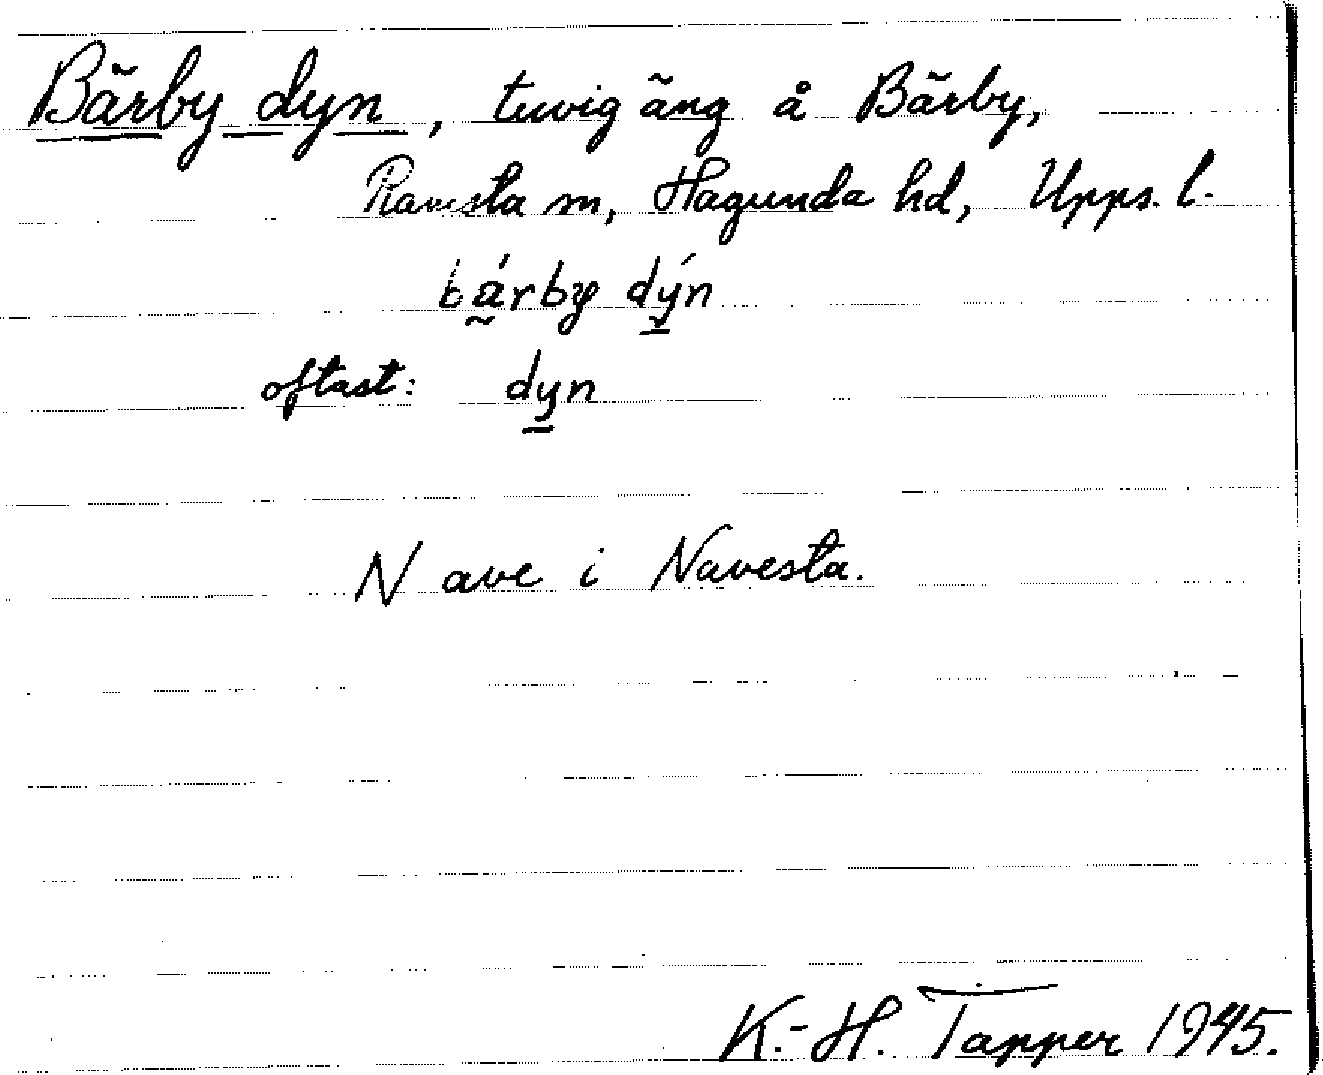 Bärby dyn, tuvig äng å Bärby,
Ramsta sn, Hagunda hd, Upps. l.
bá̰rby dý̱n
oftast: dy̱n
N ave i Navesta.
K.-H. Tapper 1945.